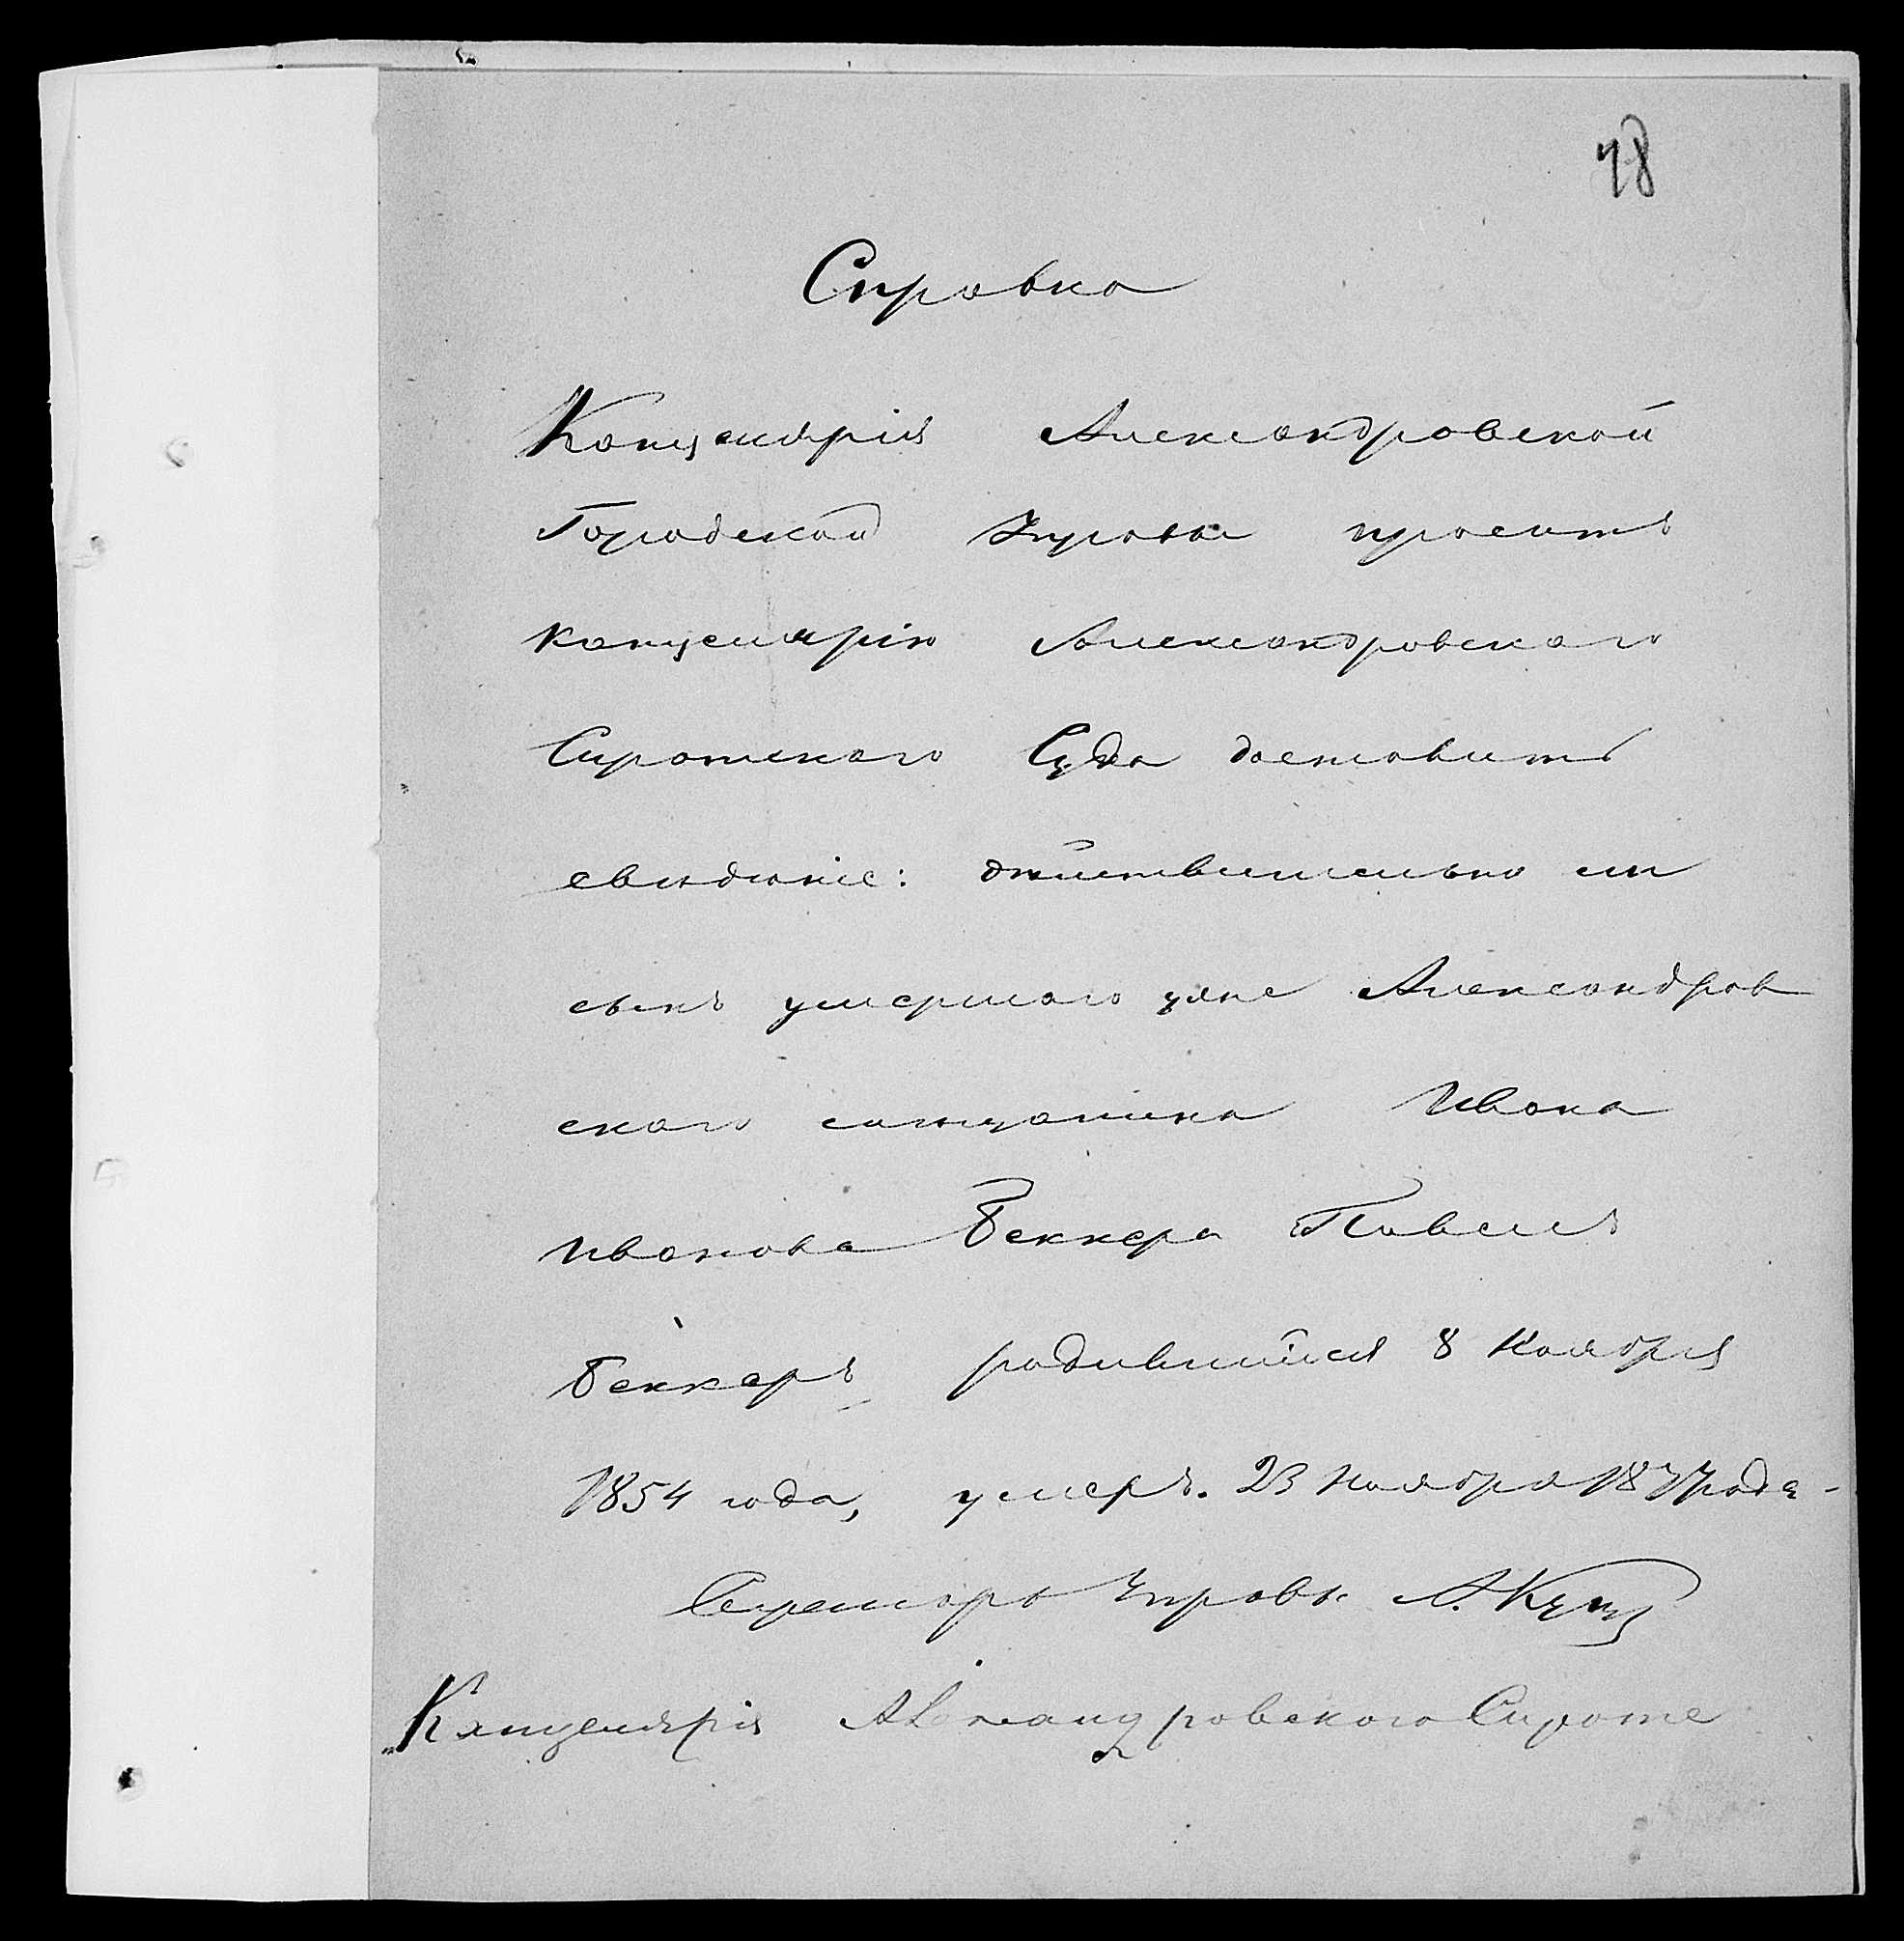 78
Справка
Канцелярія Александровской
Городской Управы проситъ
канцелярію Александровскаго
Сиротскаго Суда доставить
свѣдѣніе: дѣйствительно ли
сынъ умершаго уже Александров
скаго мѣщанина Ивана
Иванова Беккера Павелъ
Беккеръ родившійся 8 Ноября
1854 года, умеръ. 23 Ноября 1877 года -
Секретарь Управы А. Кущ
Канцелярія Александровскаго Сироте